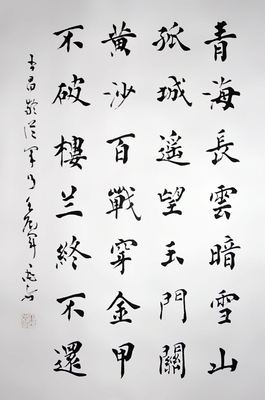 青海長雲暗雪山
孤城遥望玉門關
黄沙百戰穿金甲
不破樓兰終不還
王昌齡從軍行